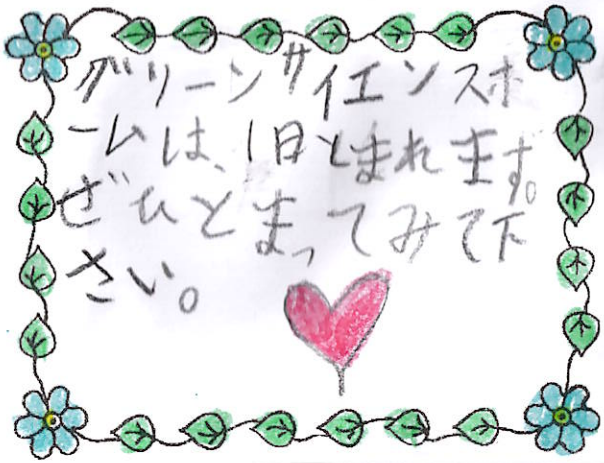 グリーンサイエンスホ
ームは、1日とまれます。
ぜひとまってみて下
さい。